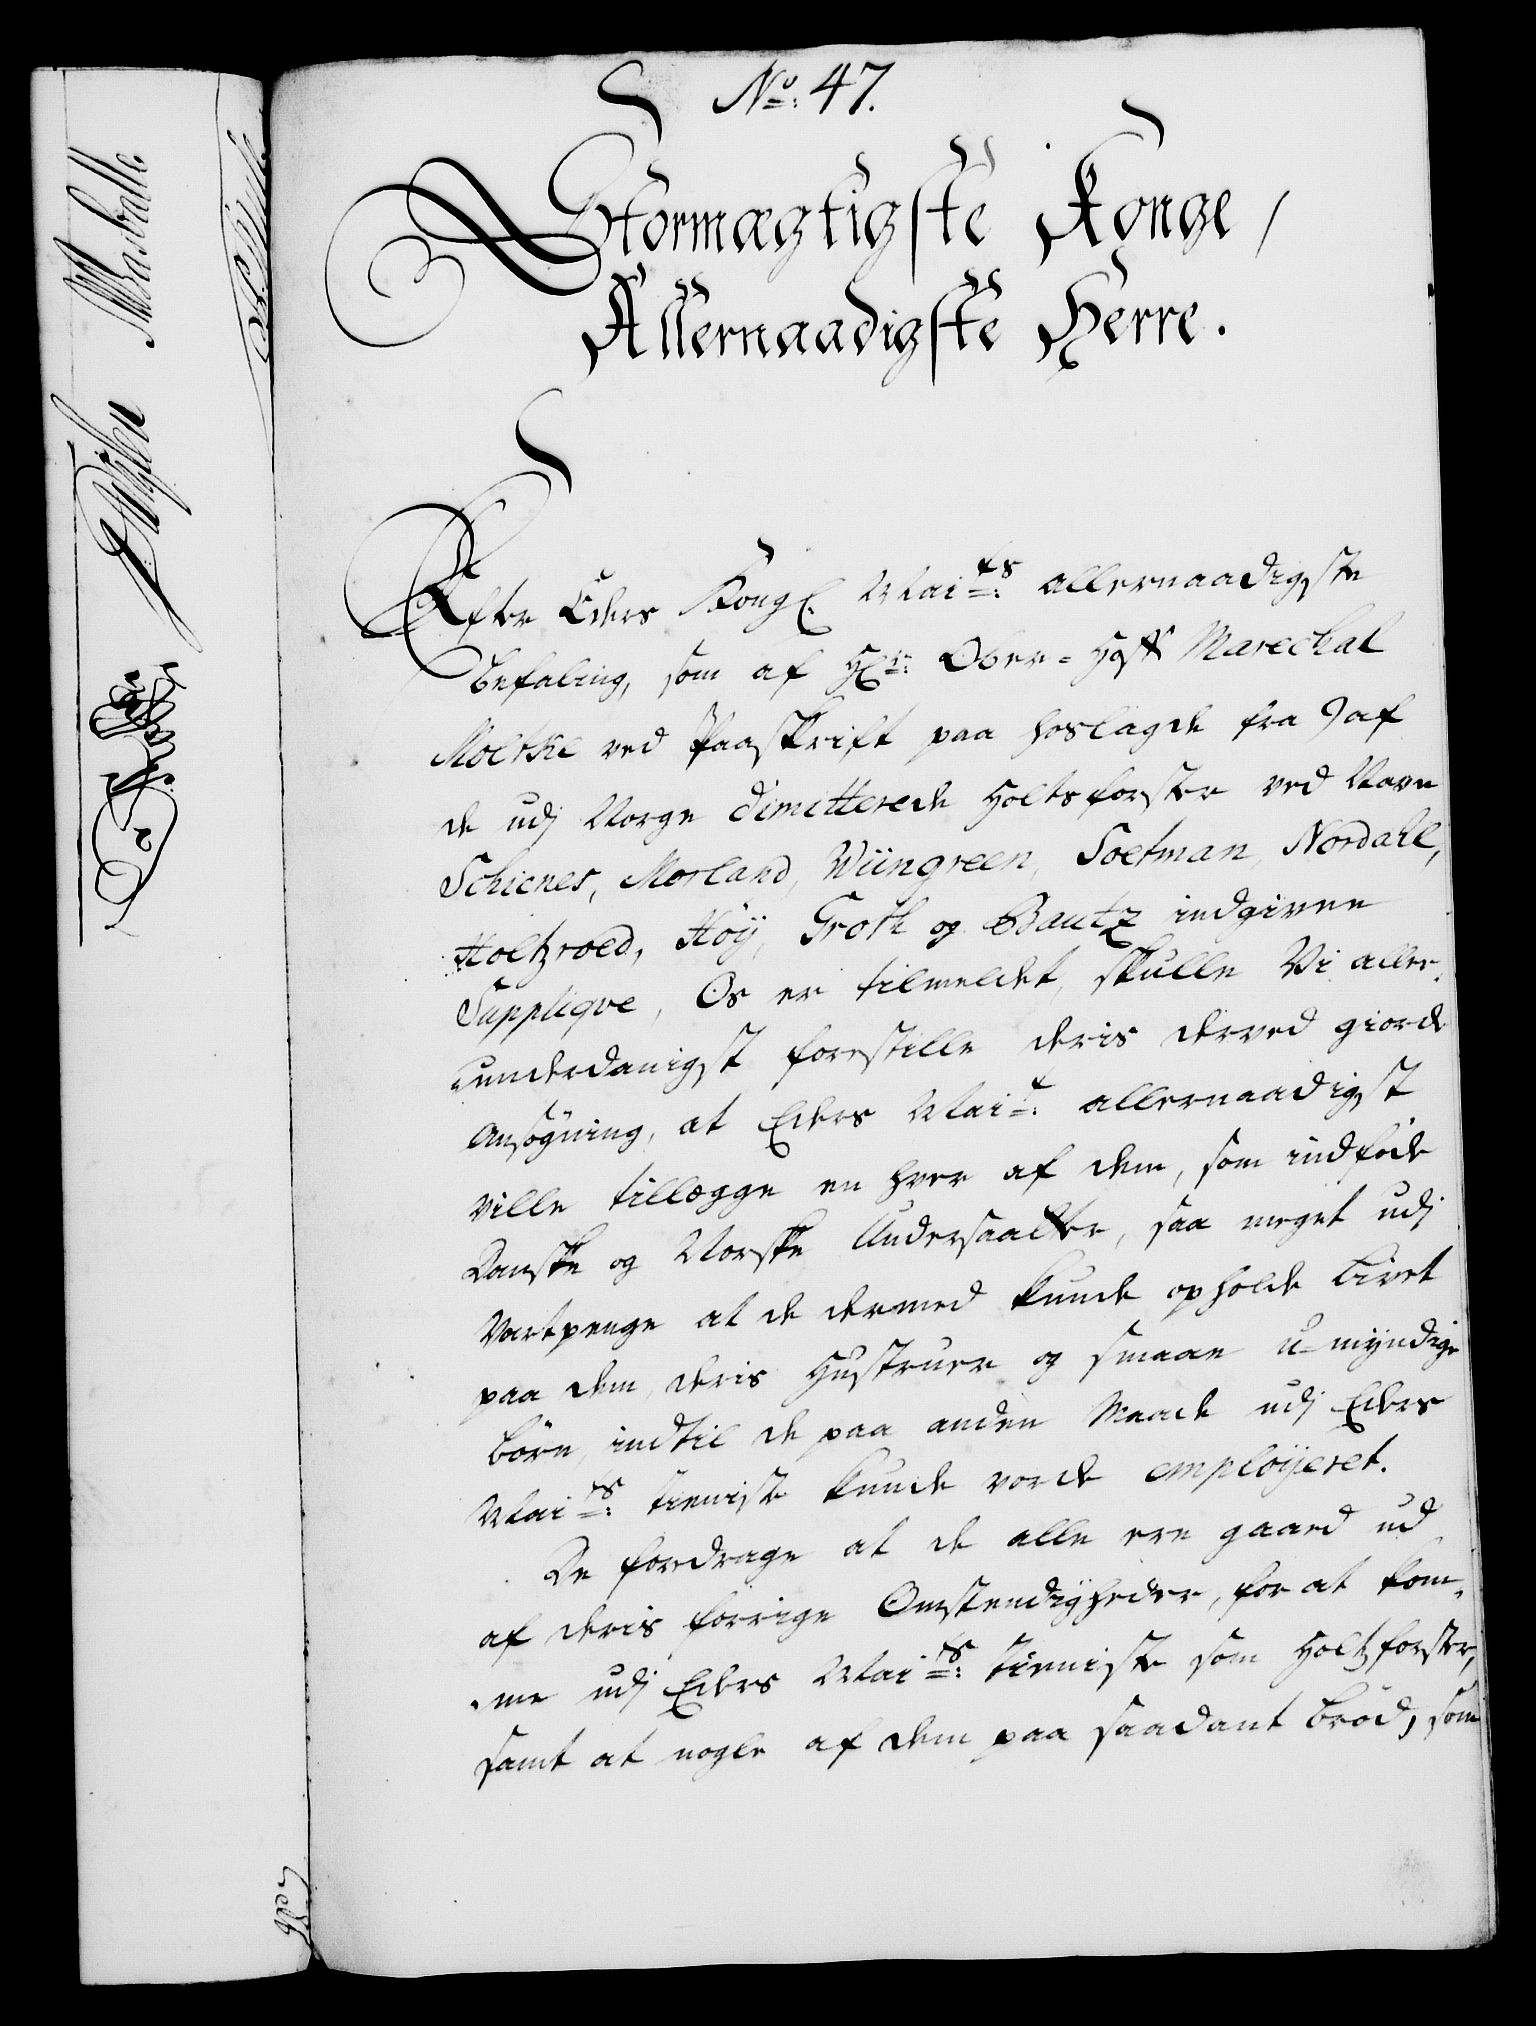 No: 47.
Stormægtigste Konge,
Allernaadigste Herre.
Efter Eders Kongl. Maits: allernaadigste
befaling, som af Hr: Ober=Hoff Marechal
Moltke ved Paaskrift paa hoslagde fra 9 af
de udj Norge dimitterede Holtsforster ved Navn
Schienes, Morland, Wiingreen, Soetman, Nordahl,
Holtzroed, Höy, Groth og Bautz indgivne
Supplique, Os er tilmeldet, skulle Vi aller-
underdanigst forestille deris derved giorde
Ansøgning, at Eders Mait: allernaadigst
ville tillægge en hver af dem, som indföde
Danske og Norske Undersaatter, saa meget udj
Vartpenge at de dermed kunde opholde Livet
paa dem, deris Hustruer og smaae u-myndige
børn, indtil de paa anden Maade udj Eders
Maits: tieniste kunde vorde employeret.
De fordrage at de alle ere gaaed ud
af deris forrige Omstendigheder, for at kom-
me udj Eders Maits: tieniste som Holtzforster,
samt at nogle af dem paa saadant brød, som